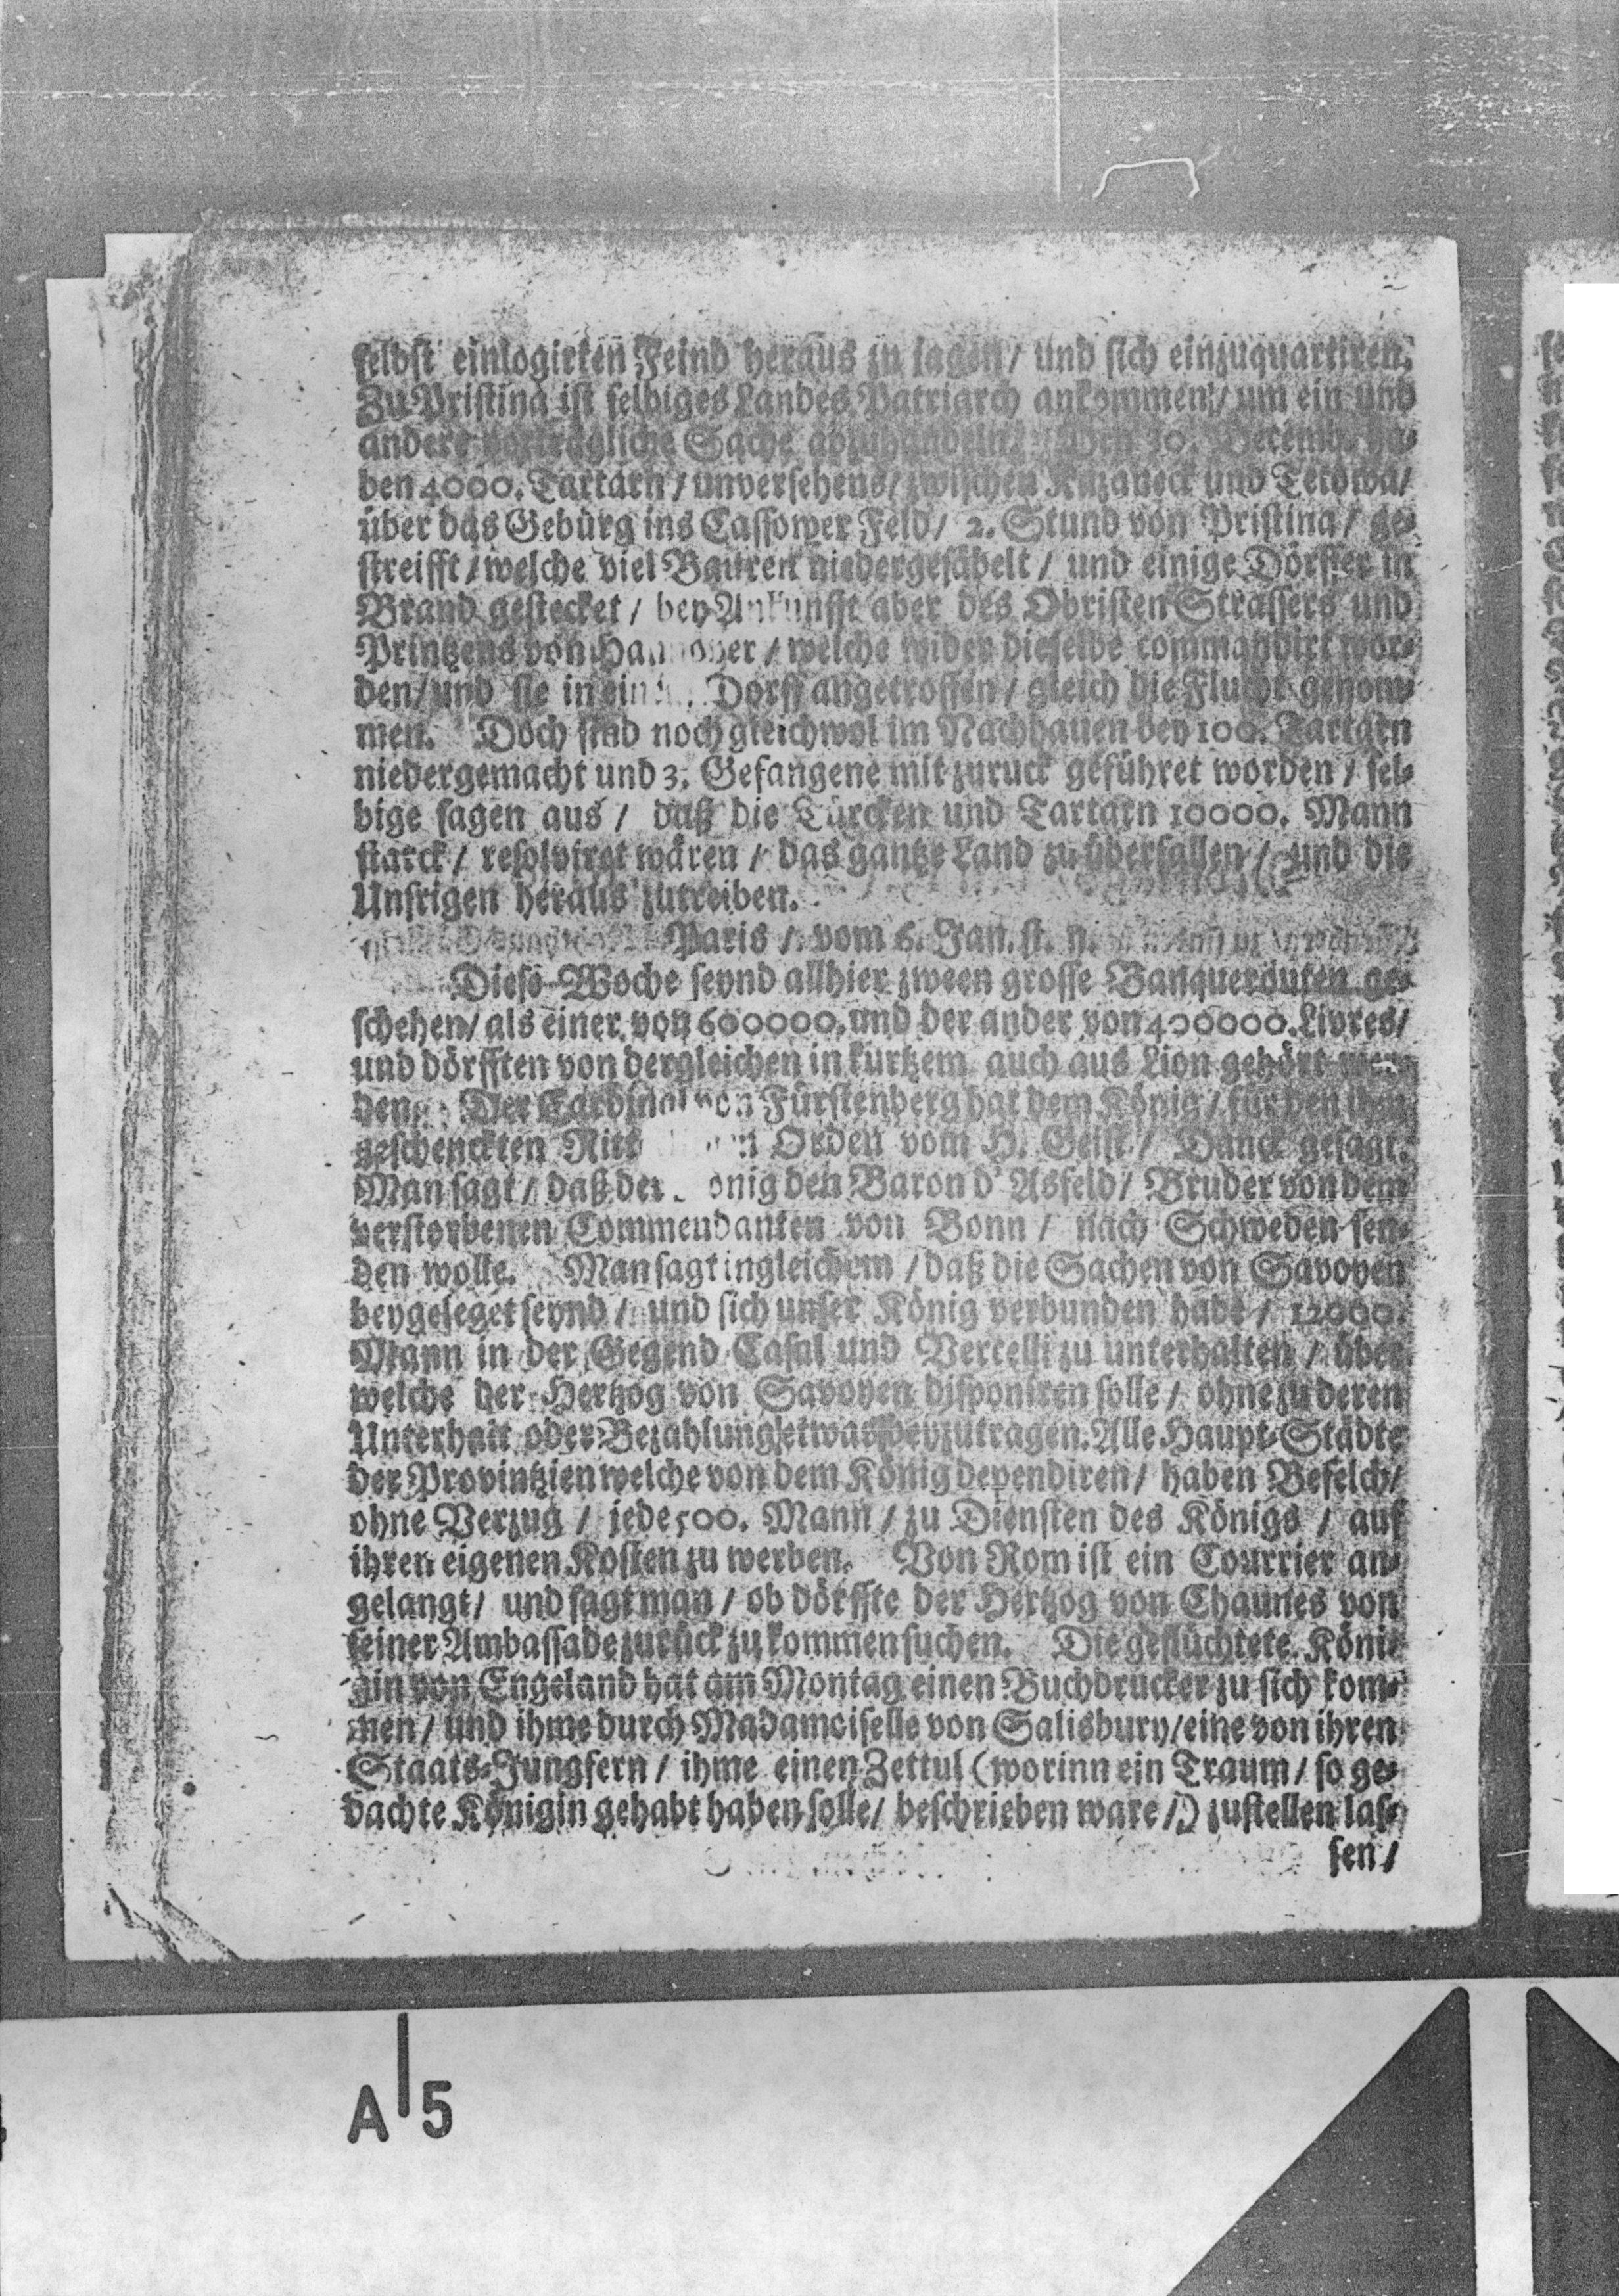 selbst einlogirten Feind heraus zu jagen / und sich einzuquartiren.
Zu Pristina ist selbiges Landes Patriarch ankommen / um ein und
andere vorträgliche Sache abzuhandeln. Den 30. Decemb. ha-
ben 4000. Tartarn / unversehens / zwischen und
über das Gebürg ins Cassower Feld / 2. Stund von Pristina / ge-
streifft / welche viel Bauren niedergesäbelt / und einige Dörffer in
Brand gestecket / bey Ankunfft aber des Obristen Strassers und
Printzens von Hannover / welche wider dieselbe commandirt wor-
den / und sie in ein Dorff angetroffen / gleich die Flucht genom-
men. Doch sind noch gleichwol im Nachhauen bey 100. Tartarn
niedergemacht und 3. Gefangene mit zuruck geführet worden / sel-
bige sagen aus / daß die Türcken und Tartarn 10000. Mann
starck / resolviret wären / das gantze Land zu überfallen / und die
Unsrigen heraus zutreiben.
Paris / vom 6. Jan. st. n.
Diese Woche seynd allhier zween grosse Banquerouten ge-
schehen / als einer von 600000. und der ander von 400000. Livres /
und dörfften von dergleichen in kurtzem auch aus Lion gehört wer-
den. Der Cardinal von Fürstenberg hat dem König / für den ihm
geschenckten Orden vom H. Geist / Danck gesagt.
Man sagt / daß der König den Baron d' Asfeld / Bruder von dem
verstorbenen Commendanten von Bonn / nach Schweden sen-
den wolle. Man sagt ingleichem / daß die Sachen von Savoyen
beygeleget seynd / und sich unser König verbunden habe / 12000.
Mann in der Gegend Casal und Vercelli zu unterhalten / über
welche der Hertzog von Savoyen disponiren solle / ohne zu deren
Unterhalt oder Bezahlung etwas beyzutragen. Alle Haupt-Städte
der Provintzien welche von dem König dependiren / haben Befelch /
ohne Verzug / jede 500. Mann / zu Diensten des Königs / auf
ihren eigenen Kosten zu werben. Von Rom ist ein Courrier an-
gelangt / und sagt man / ob dörffte der Hertzog von Chaunes von
seiner Ambassade zurück zu kommen suchen. Die geflüchtete Köni-
gin von Engeland hat am Montag einen Buchdrucker zu sich kom-
men / und ihme durch Madamoiselle von Salisbury / eine von ihren
Staats-Jungfern / ihme einen Zettul (worinn ein Traum / so ge-
dachte Königin gehabt haben solle / beschrieben ware /) zustellen las-
sen /
A 5